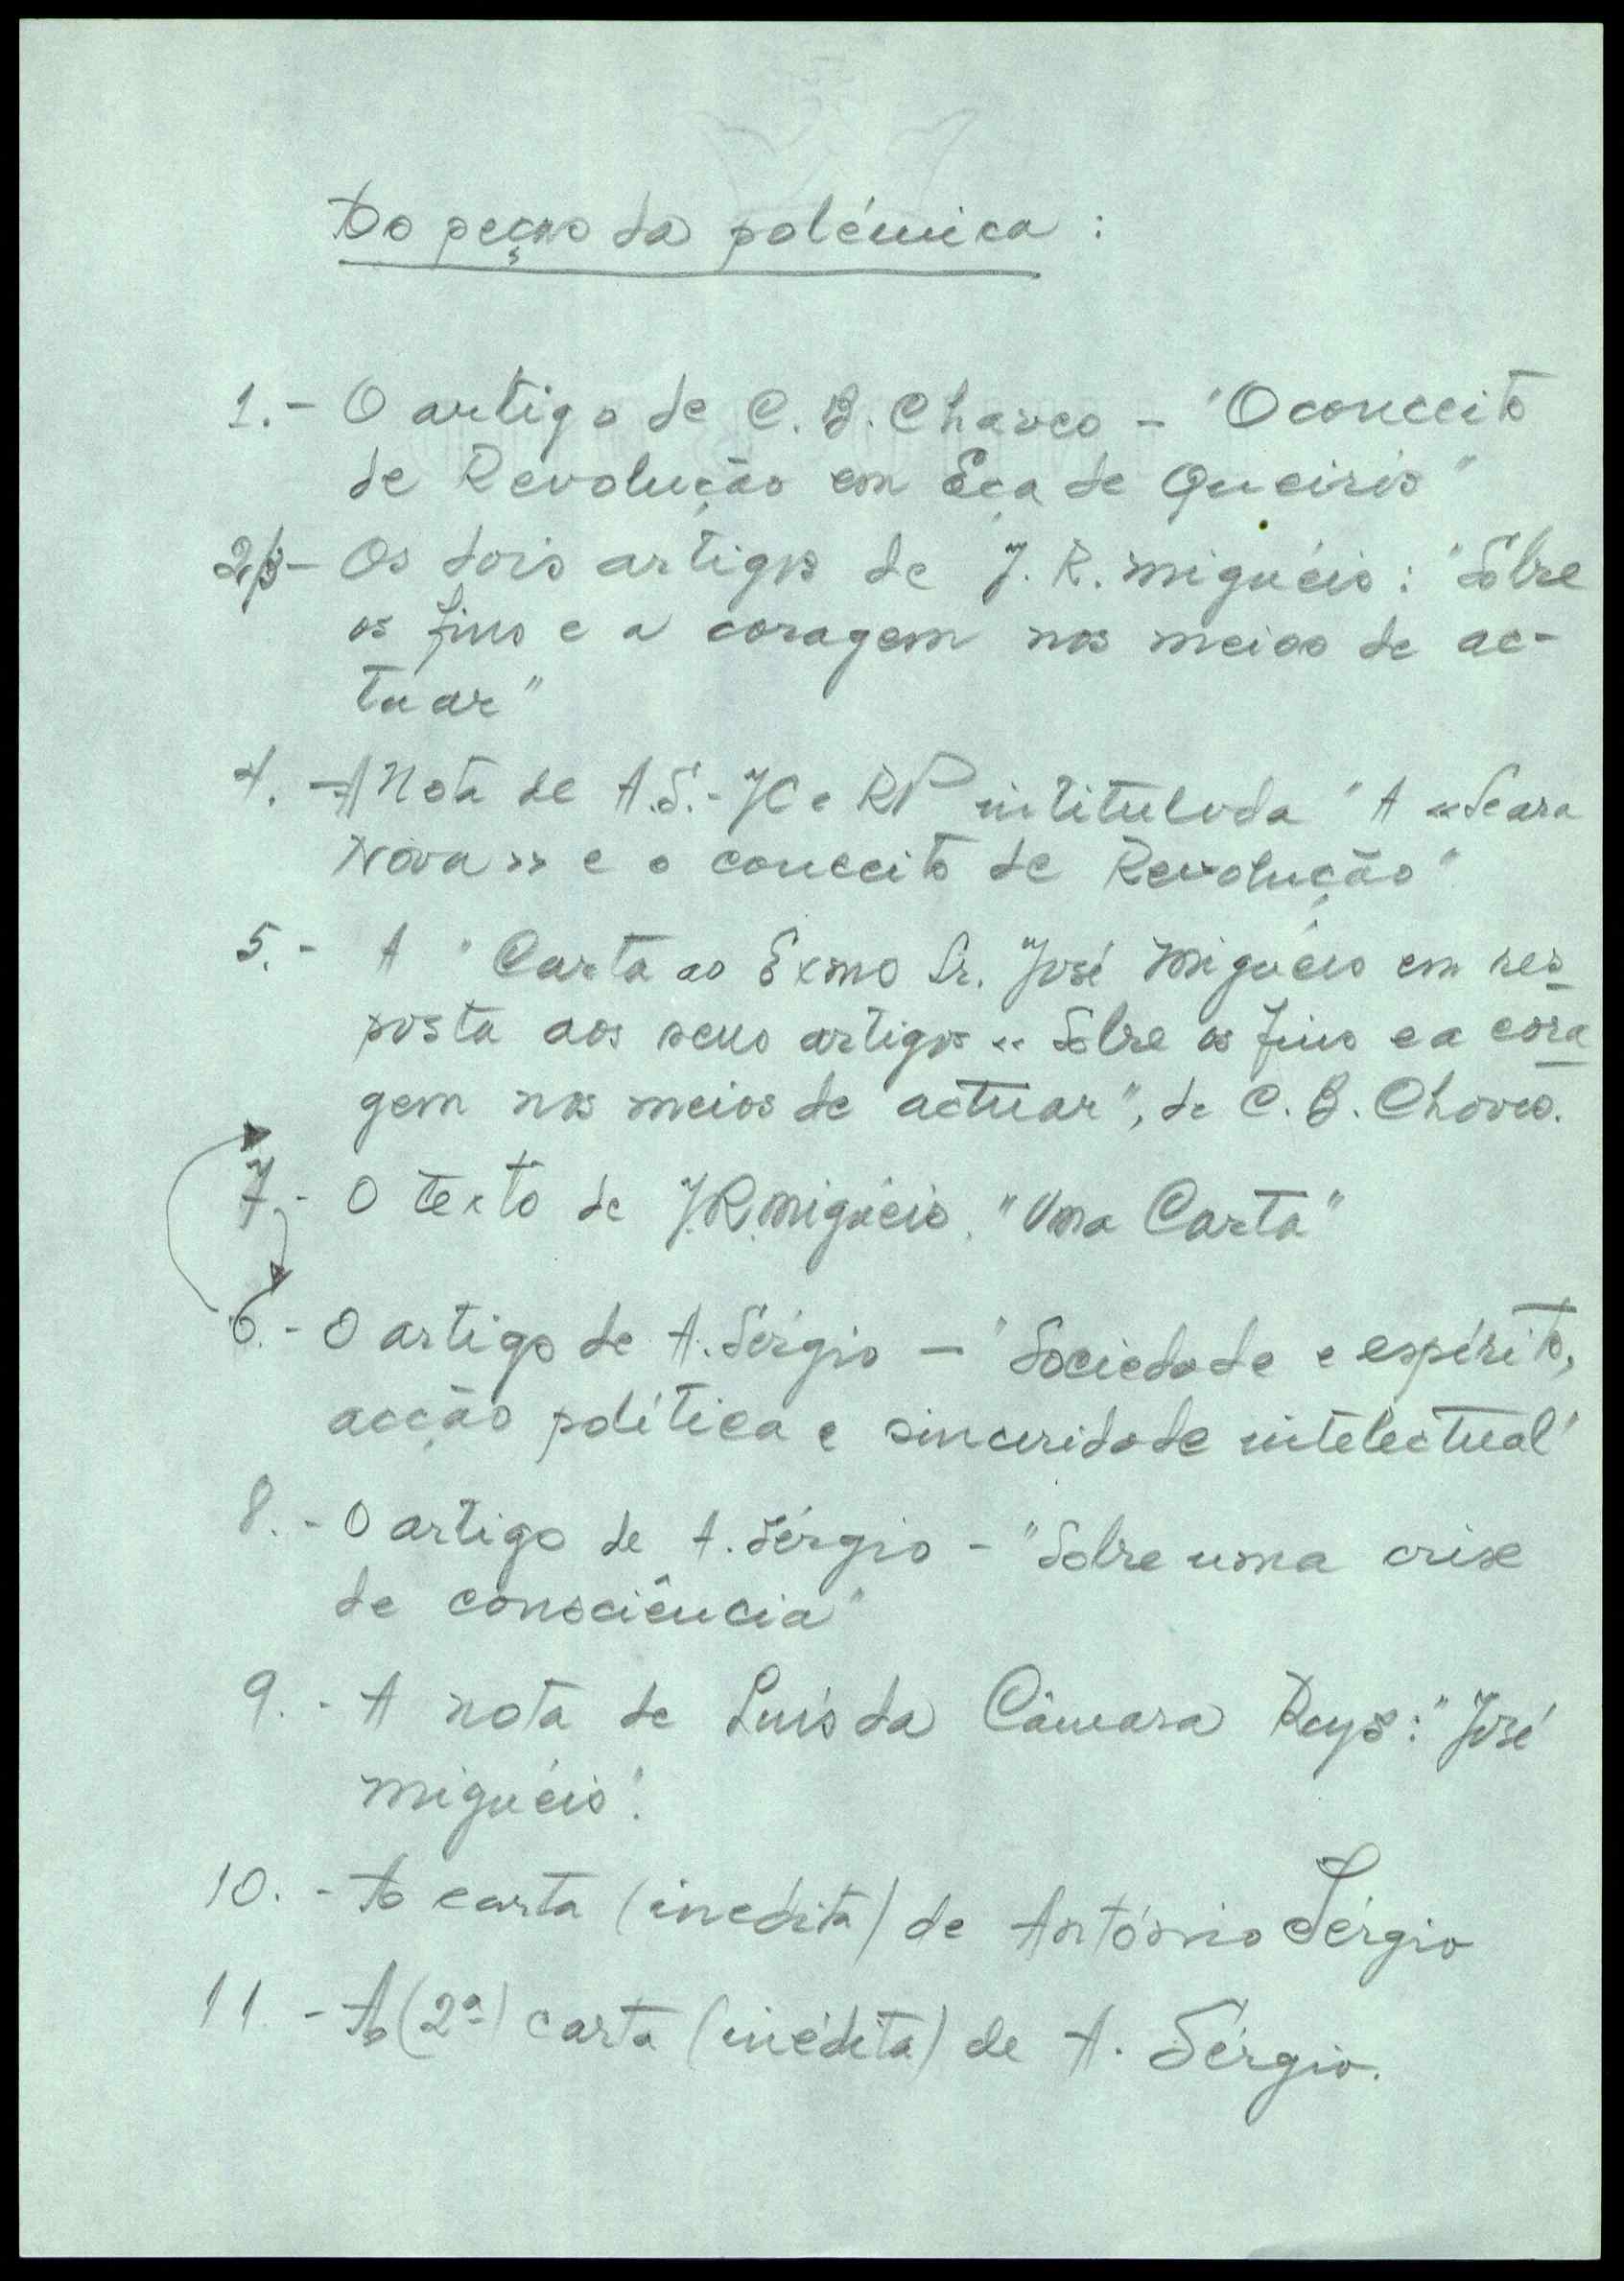 As peças da polémica :
1. - O artigo de C. B. Chaves - "O conceito
de Revolução em Eça de Queirós"
2/3 - Os dois artigos de J. R. Miguéis : "Sôbre
os fins e a coragem nos meios de ac-
tuar"
4. - A Nota de A.S. - JC e RP intitulada "A «Seara
Nova» e o conceito de Revolução"
5. - A "Carta ao Exmo Sr. José Miguéis em res-
posta aos seus artigos «Sobre os fins e a cora-
gem nos meios de actuar", de C. B. Chaves.
7. - O texto de J.R. Miguéis, "Uma Carta"
6. - O artigo de A. Sérgio - "Sociedade e espírito,
acção política e sinceridade intelectual"
8. - O artigo de A. Sérgio - "Sobre uma crise
de consciência"
9. - A nota de Luís da Câmara Reys : "José
Miguéis".
10. - A carta (inédita) de António Sérgio
11. - A (2ª) carta (inédita) de A. Sérgio.